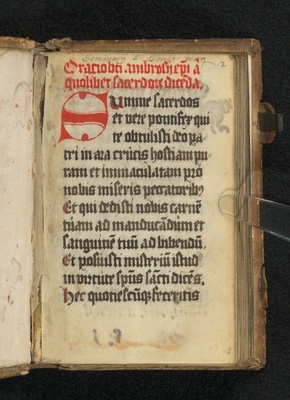 2
Oratio bti ambrosii epi a
quolibet sacerdote dicēda.
Summe sacerdos
et vere pontifex qui
te obtulisti deo pa
tri in ara crucis hostiam pu
ram et immaculatam pro
nobis miseris peccatoribꝰ
Et qui dedisti nobis carnē
tuam ad manducandum et
sanguinē tuū ad bibendū.
Et posuisti misteriū istud
in virtute spūs sācti dicēs.
Hec quotiēscūqꝫ feceritis